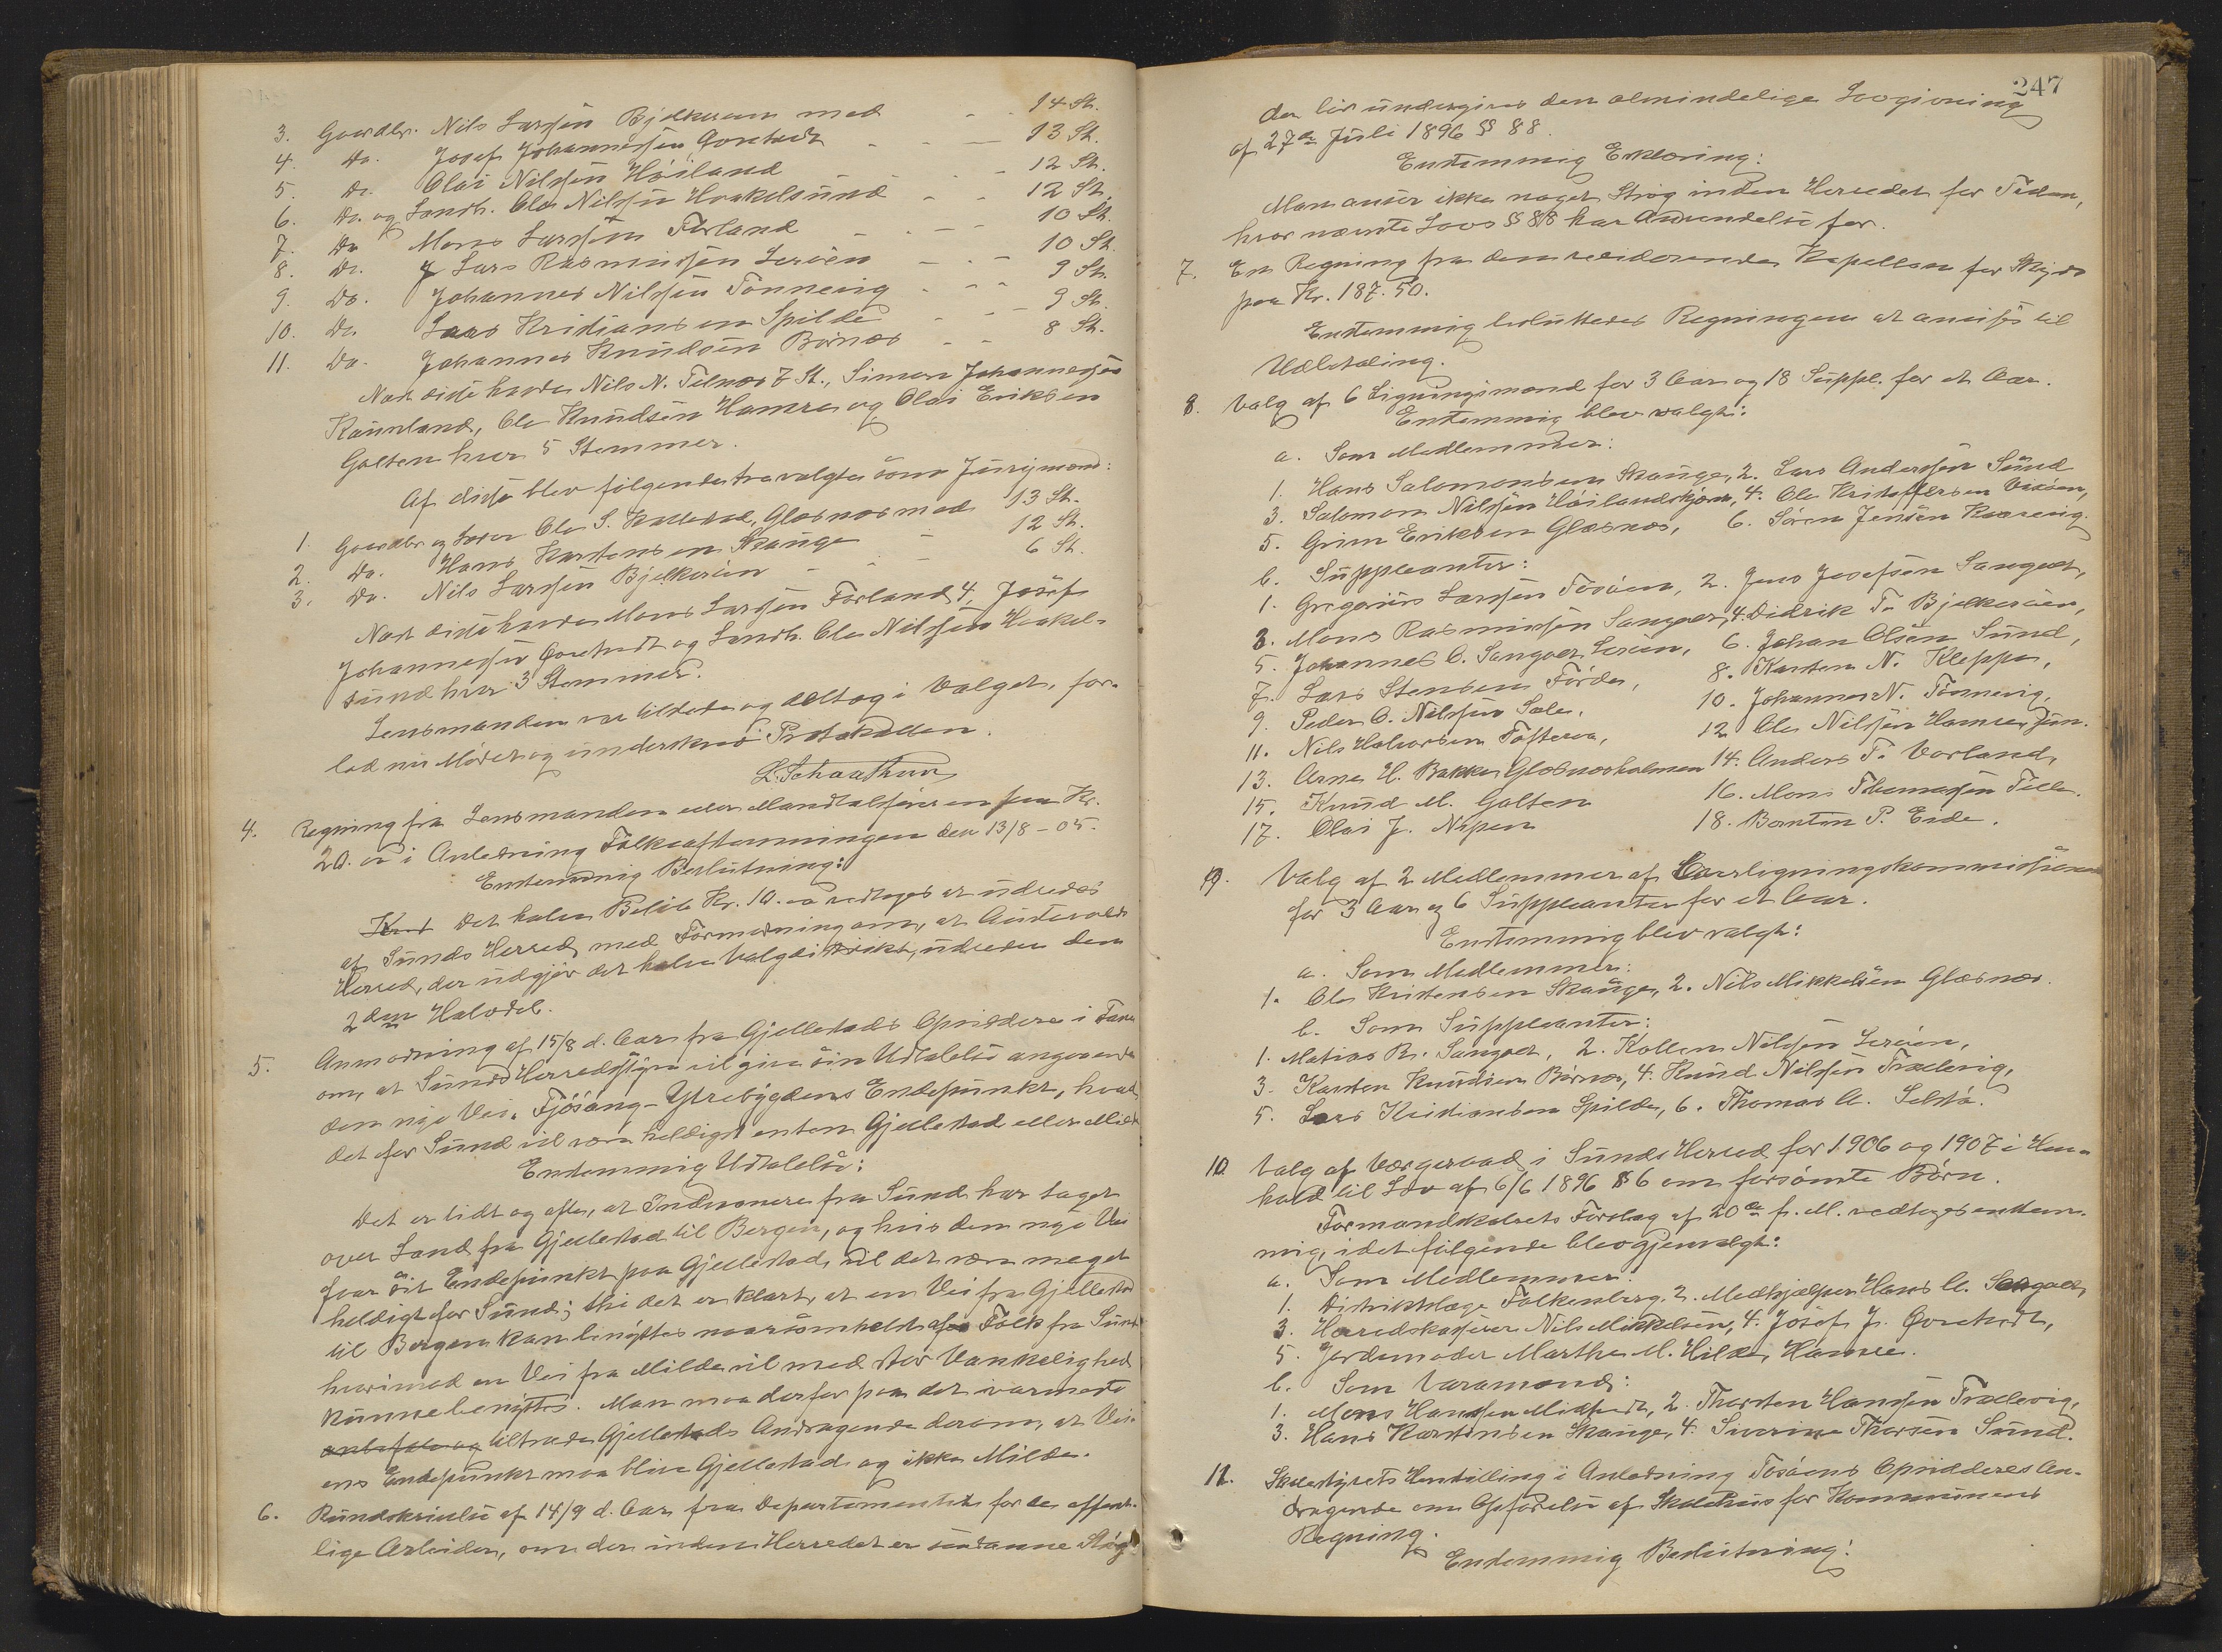 3. Gaardbr. Nils Larssen Bjelkerøen med - - 14 St.
4. Do. Josef Johannessen Goretvedt - - - 13 St.
5. Do. Olai Nilssen Høiland - - 12 St.
6. Do. og Landh. Ole Nilssen Haakelsund - - 12 St.
7. Do Mons Larssen Førland - - - 10 St.
8. Do. Lars Rasmussen Lerøen - - - 10 St.
9. Do. Johannes Nilssen Tønnevig - - - 9 St.
10. Do. Lars Kristiansen Spilde - - - 9 St.
11. Do. Johannes Knudsen Børnæs - - 8 St.
Næst disse havde Nils N. Telnæs 7 St., Simon Johannessen
Kausland, Ole Knudsen Hamre og Olai Eriksen
Golten hver 5 Stemmer.
Af disse blev følgende tre valgte som Jurymænd:
1. Gaardbr. og Lærer Ole S. Kallestad, Glæsnæs med 13 St.
2. Do. Hans Karstensen Skauge - 12 St.
3. Do. Nils Larssen Bjelkerøen - - - 6 St.
Næst disse havde Mons Larssen Førland 4, Josef
Johannessen Goretvedt og Landh. Ole Nilssen Haakel-
sund hver 3 Stemmer.
Lensmanden var tilstede og deltog i Valget, for-
lod nu Mødet og underskrev Protokollen.
4. Regning fra Lensmanden som Mandtalsfører paa Kr.
20.00 i Anledning Folkeafstemningen den 13/8-05.
Enstemmig Beslutning:
Det halve Beløb Kr. 10.00 vedtoges at udredes
af Sunds Herred med Formodning om, at Austevolds
Herred, der udgjør det halve Valgdistrikt, udreder den
2den Halvdel.
5. Anmodning af 15/8 d. Aar fra Gjellestads Opsiddere i Fane
om, at Sunds Herredsstyre vil give sin Udtalelse angaaende
den nye Vei Fjøsang-Ytrebygdens Endepunkt, hvad
det for Sund vil være heldigst enten Gjellestad eller Milde
Enstemmig Udtalelse:
Det er tidt og ofte, at Indvaanere fra Sund har taget
over Land fra Gjellestad til Bergen, og hvis den nye Vei
faar sit Endepunkt paa Gjellestad, vil det være meget
heldigt for Sund; thi det er klart, at en Vei fra Gjellestad
til Bergen kan benyttes naarsomhelst af Folk fra Sund
hvorimod en Vei fra Milde vil med stor Vanskelighed
kunne benyttes. Man maa derfor paa det varmeste
anbefale og tiltræde Gjellestads Andragende derom, at Vei-
ens Endepunkt maa blive Gjellestad og ikke Milde.
6. Rundskrivelse af 14/9 d. Aar fra Departementet for de offent-
lige Arbeider, om der inden Herredet er saadanne Strøg
247
der bør undergives den almindelige Lovgivning
af 27de Juli 1896 § 88.
Enstemmig Erklæring:
Man anser ikke noget Strøg inden Herredet for Tiden,
hvor nævnte Lovs § 88 har Anvendelse for.
7. En Regning fra den residerende Kapellan for Skyds
paa Kr. 187.50.
Enstemmig besluttedes Regningen at anvises til
Udbetaling.
8. Valg af 6 Ligningsmænd for 3 Aar og 18 Suppl. for et Aar.
Enstemmig blev valgt:
a. Som Medlemmer:
1. Hans Salomonsen Skauge, 2. Lars Anderssen Sund
3. Salomon Nilssen Høilandskjøen, 4. Ole Kristoffersen Vaxøen,
5. Grim Eriksen Glæsnæs, 6. Søren Jensen Kaarevig.
b. Suppleanter:
1. Gregorius Larssen Tosøen, 2. Jens Josefsen Sangolt,
3. Mons Rasmussen Sangolt, 4. Didrik T. Bjelkerøen,
5. Johannes O. Sangolt Lerøen, 6. Johan Olsen Sund,
7. Lars Stensen Førde, 8. Karsten N. Kleppe,
9. Peder O. Nilssen Sæle, 10. Johannes N. Tønnevig,
11. Nils Halvorsen Tofterø, 12 Ole Nilssen Hamre jun.
13. Arne H. Bakke, Glæsnæsholmen 14. Anders T. Vorland,
15. Knud M. Golten 16. Mons Thomassen Telle.
17. Olai J. Nipen 18. Bernten P. Eide.
9. Valg af 2 Medlemmer af Overligningskommissionen
for 3 Aar og 6 Suppleanter for et Aar.
Enstemmig blev valgt:
a. Som Medlemmer:
1. Ole Kristensen Skauge, 2. Nils Mikkelsen Glæsnæs.
b. Som Suppleanter:
1. Matias R. Sangolt, 2. Kolben Nilssen Lerøen,
3. Karsten Knudsen Børnæs, 4. Knud Nilssen Trællevig,
5. Lars Kristiansen Spilde, 6. Thomas A. Selstø.
10. Valg af Værgeraad i Sunds Herred for 1906 og 1907 i Hen-
hold til Lov af 6/6 1896 § 6 om forsømte Børn.
Formandskabets Forslag af 20de f. M. vedtoges enstem-
mig, idet følgende blev gjenvalgt:
a. Som Medlemmer:
1. Distriktslæge Falkenberg, 2. Medhjælper Hans A. Sangolt,
3. Herredskasserer Nils Mikkelsen, 4. Josef J. Goretvedt,
5. Jordemoder Marthe M. Hilde, Hamre.
b. Som Varamænd:
1. Mons Hanssen Midtvedt, 2. Thorsten Hanssen Trællevig,
3. Hans Karstensen Skauge, 4. Severine Thorsen Sund.
11. Skolestyrets Henstilling i Anledning Tosøens Opsidderes An-
dragende om Opførelse af Skolehus for Kommunens
Regning.
Enstemmig Beslutning: